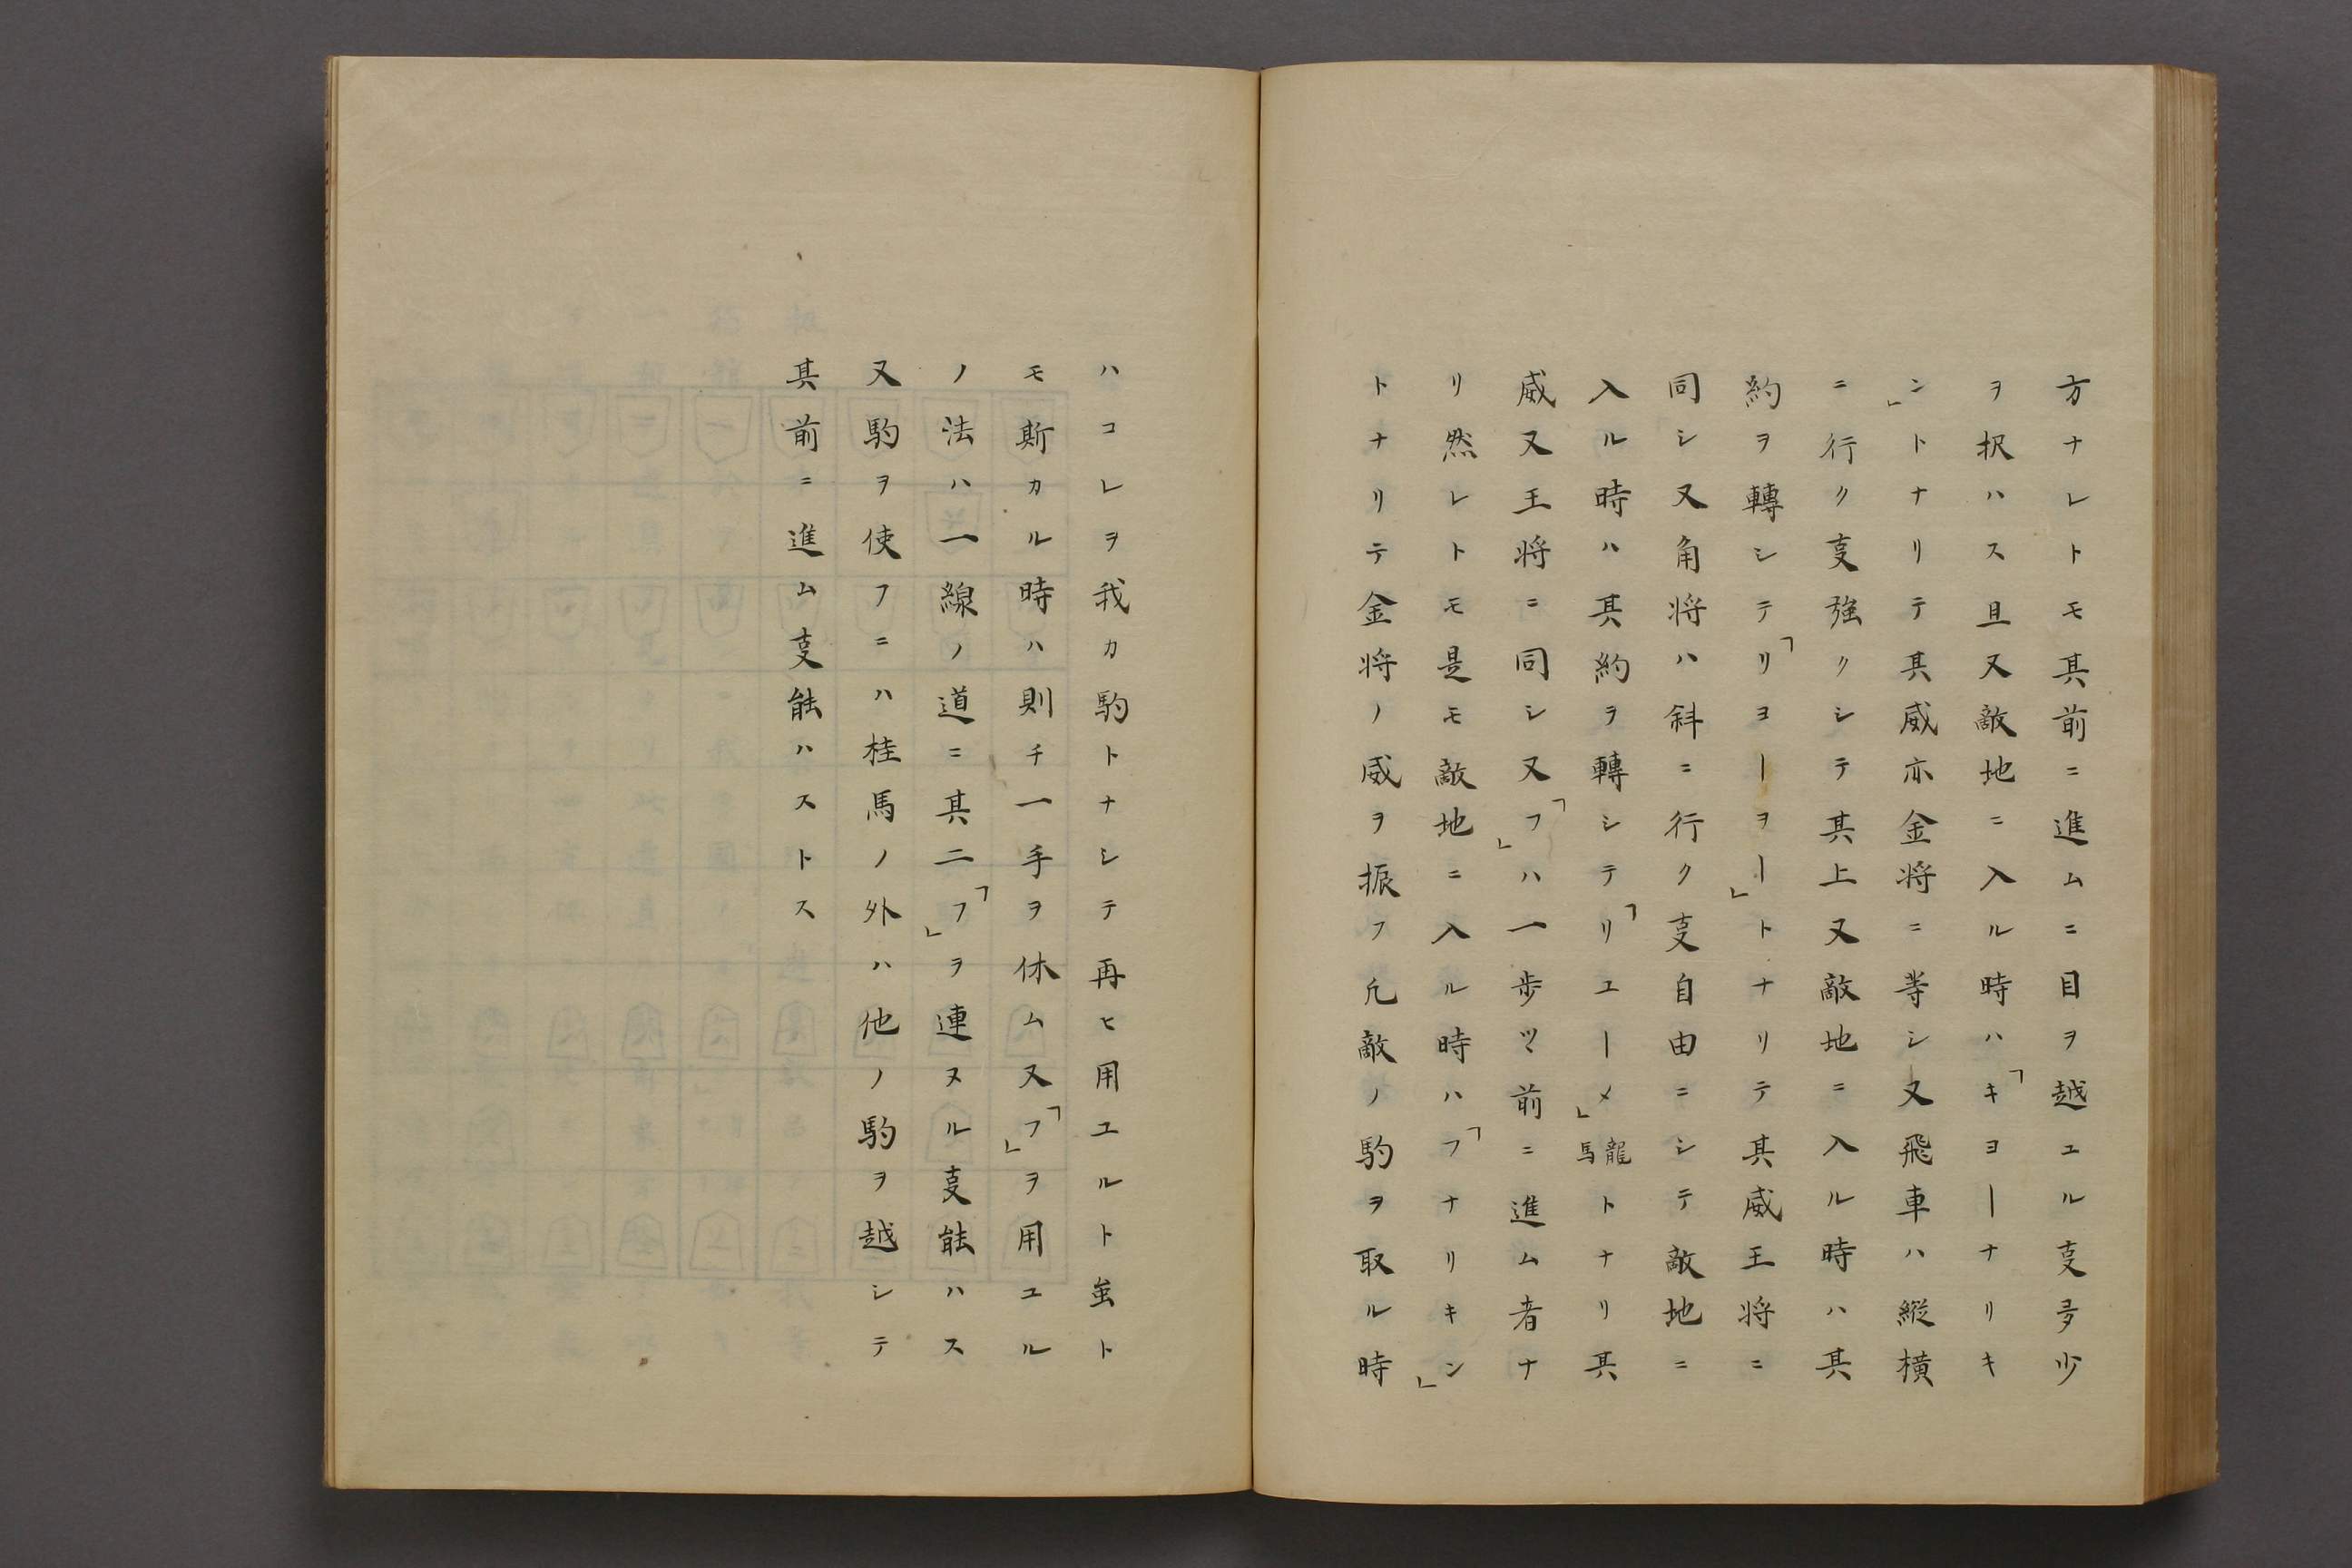 方ナレトモ其前ニ進ムニ目ヲ越ユル㕝多少
ヲ択ハス且又敵地ニ入ル時ハ「キヨーナリキ
ン」トナリテ其威亦金将ニ等シ又飛車ハ縦横
ニ行ク㕝強クシテ其上又敵地ニ入ル時ハ其
約ヲ轉シテ「リヨーヲー」トナリテ其威王将ニ
同シ又角将ハ斜ニ行ク㕝自由ニシテ敵地ニ
入ル時ハ其約ヲ轉シテ「リユーメ」龍馬トナリ其
威又王将ニ同シ又「フ」ハ一歩ツヽ前ニ進ム者ナ
リ然レトモ是モ敵地ニ入ル時ハ「フナリキン」
トナリテ金将ノ威ヲ振フ凡敵ノ駒ヲ取ル時
ハコレヲ我カ駒トナシテ再ヒ用ユルト虽ト
モ斯カル時ハ則チ一手ヲ休ム又「フ」ヲ用ユル
ノ法ハ一線ノ道ニ其二「フ」ヲ連ヌル㕝能ハス
又駒ヲ使フニハ桂馬ノ外ハ他ノ駒ヲ越シテ
其前ニ進ム㕝能ハストス